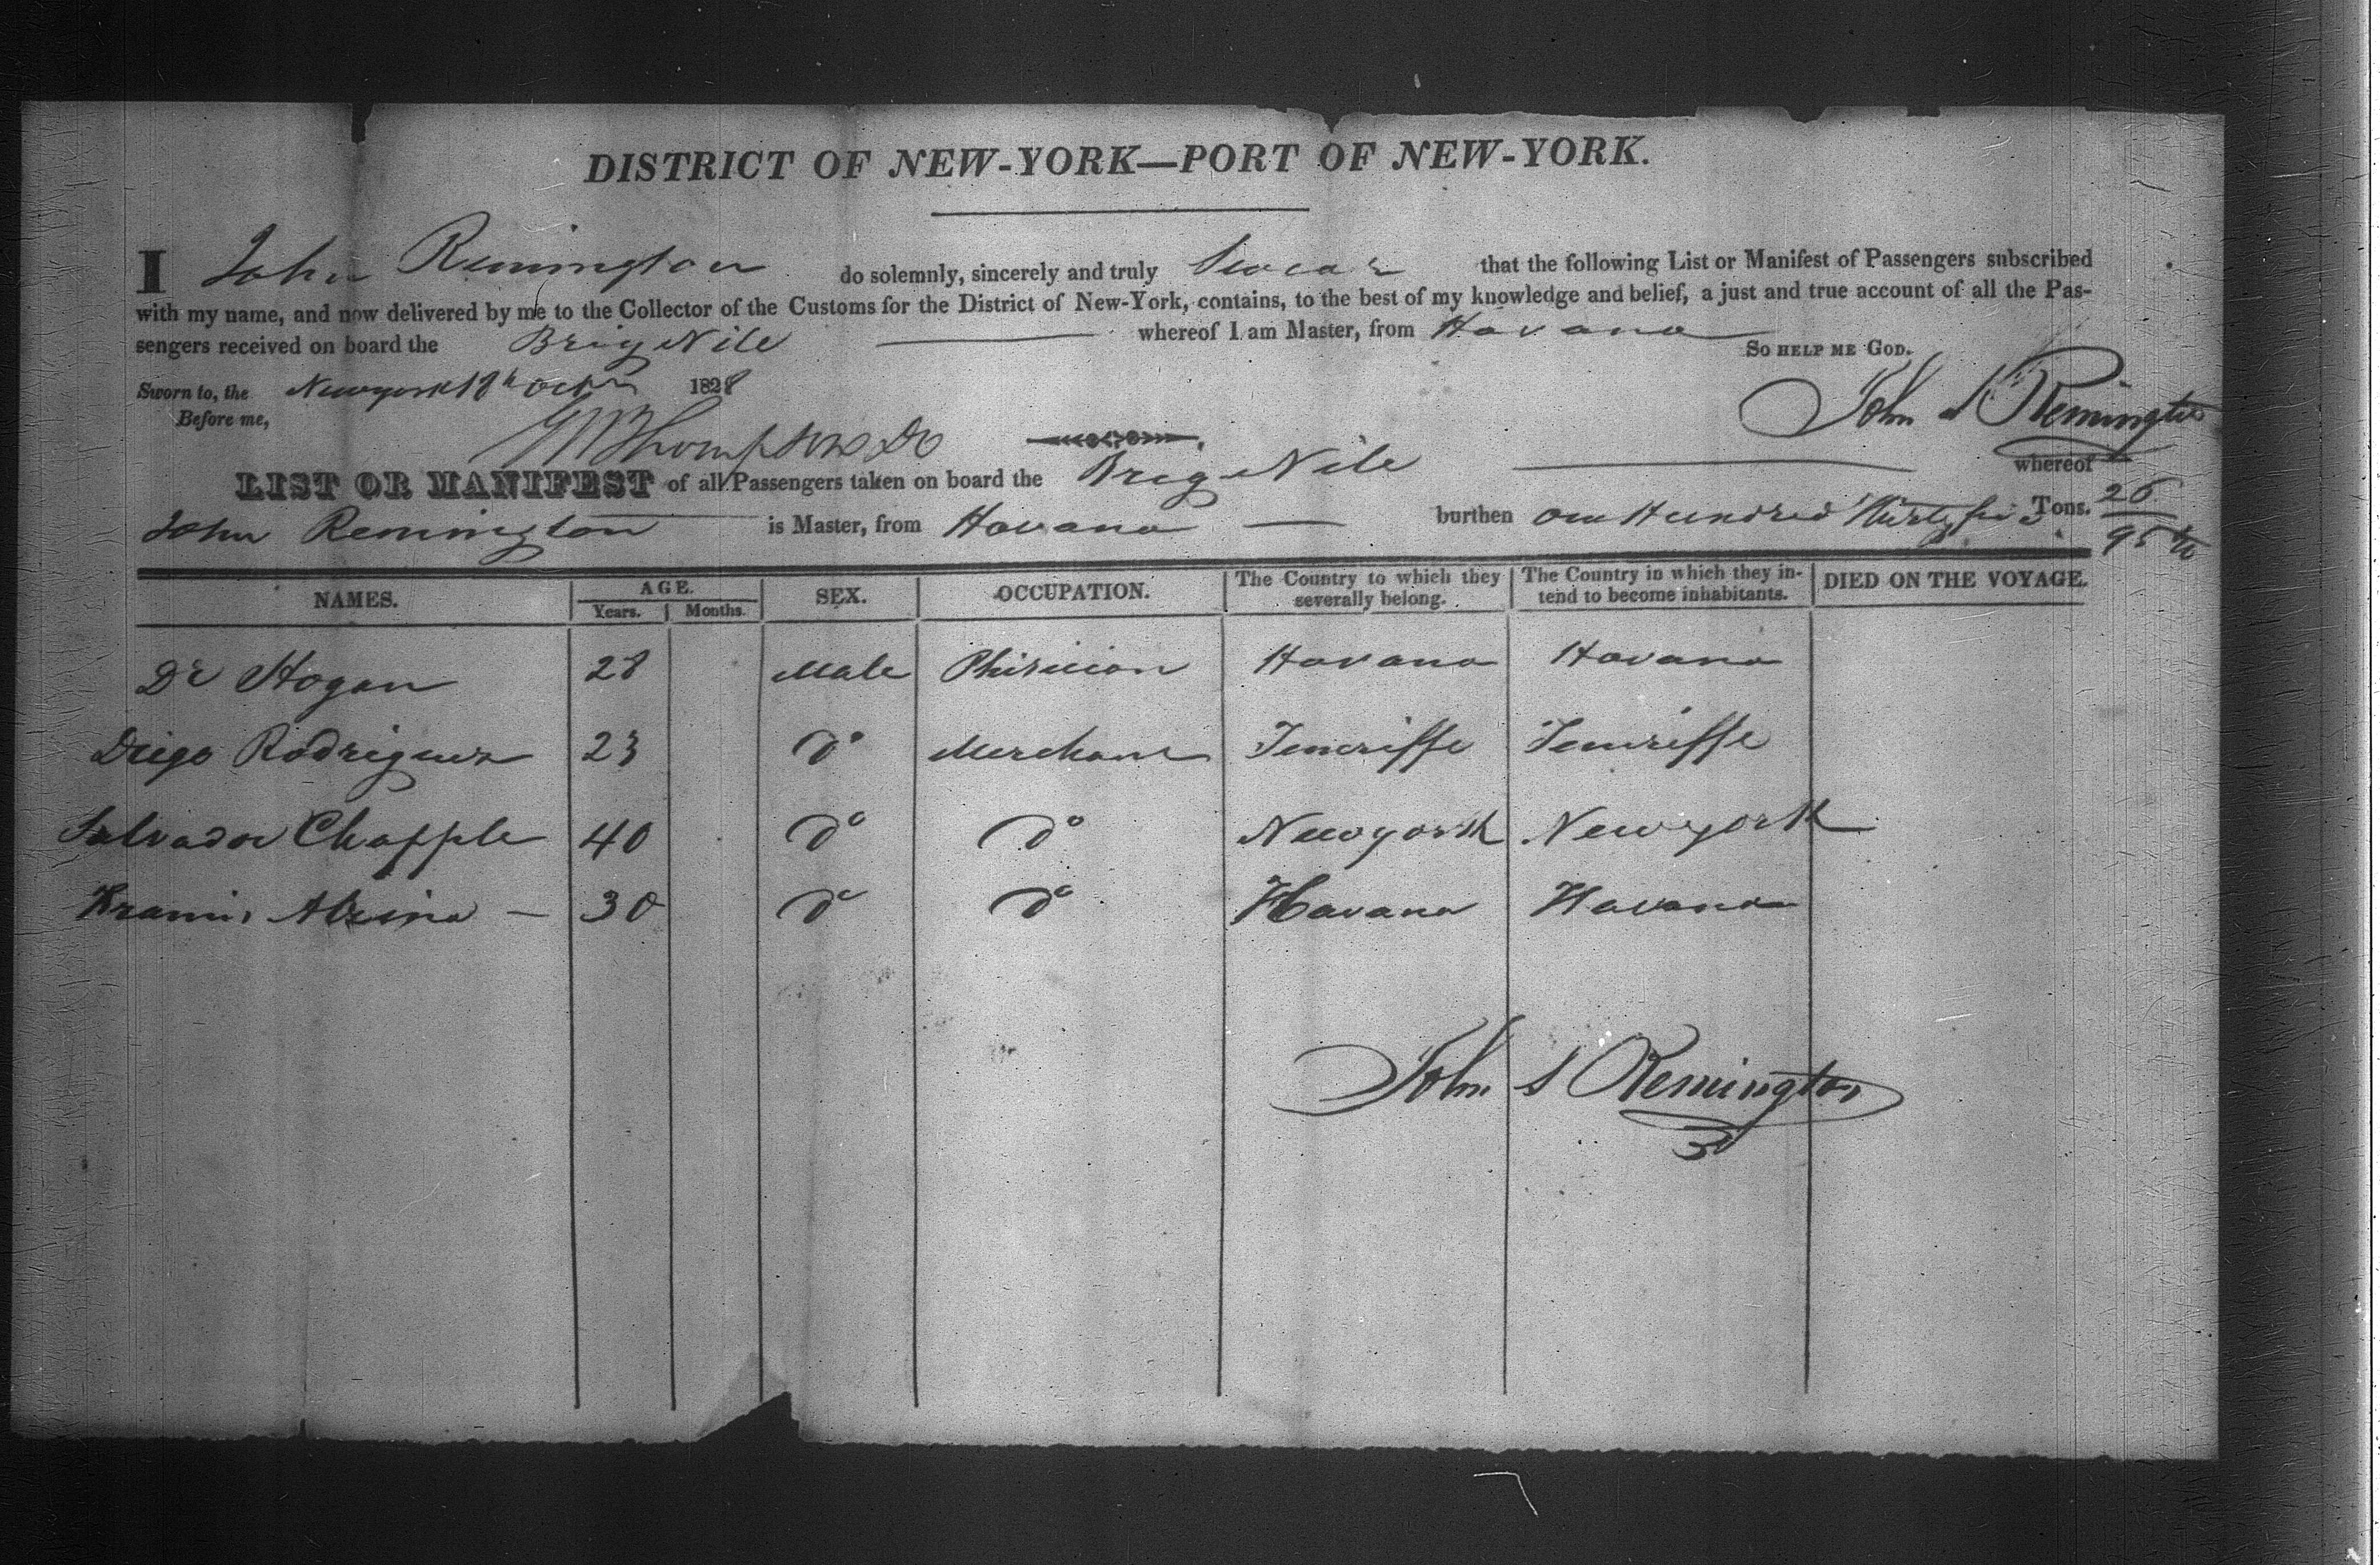 DISTRICT OF NEW-YORK—PORT OF NEW-YORK.
I John Remington do solemnly, sincerely and truly Swear that the following List or Manifest of Passengers subscribed
with my name, and now delivered by me to the Collector of the Customs for the District of New-York, contains, to the best of my knowledge and belief, a just and true account of all the Pas-
sengers received on board the Brig Nile whereof I am Master, from Havana
So help me God.
Sworn to, the Newyork 18th Octr 1828
John S Remington
Before me,
Thompson
LIST OR MANIFEST of all Passengers taken on board the Brig Nile whereof
John Remington is Master, from Havana burthen One Hundred Thirty Tons. 26/95
NAMES. AGE. Years. Months. SEX. OCCUPATION. The Country to which they severally belong. The Country in which they in-tend to become inhabitants. DIED ON THE VOYAGE.
Dr Hogan 28 Male Phisician Havana Havana
Diego Rodriguez 23 do Merchant Teneriffe Teneriffe
Salvador Chapple 40 do do Newyork Newyork
30 do do Havana Havana
John S Remington